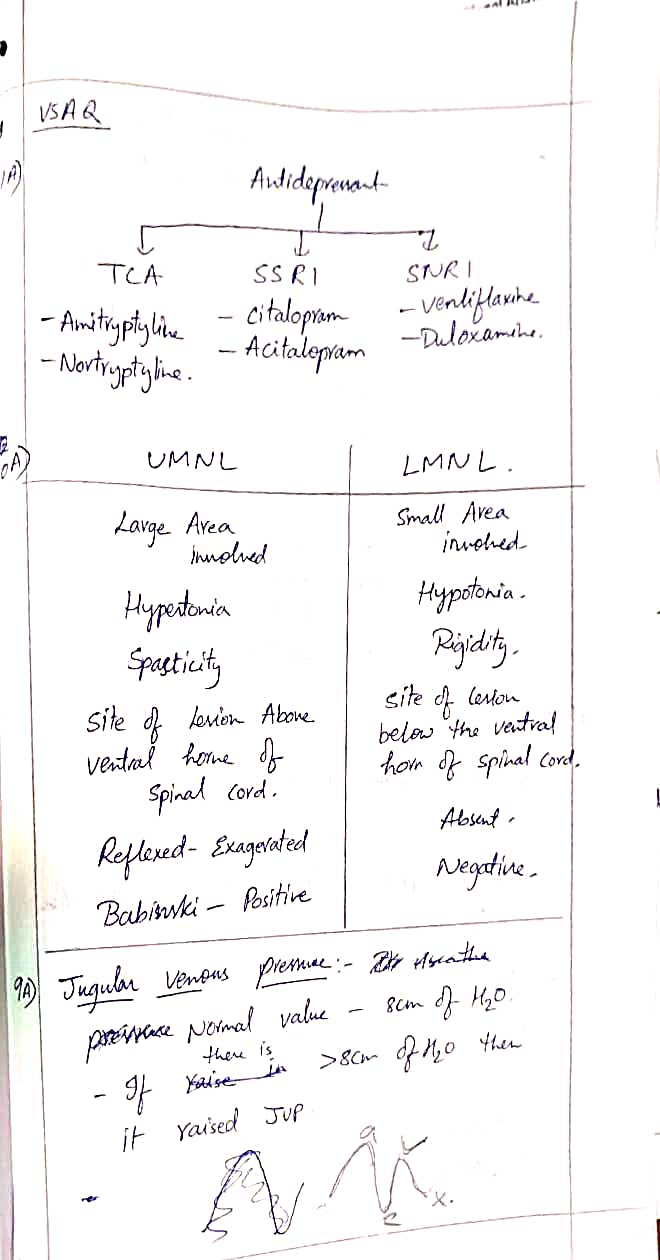 VSAQ
1A)
Antidepressant
TCA SSRI SNRI
- Amitryptyline - Citalopram - Venliflaxine
- Nortryptyline. - Acitalopram - Duloxamine.
0A) UMNL LMNL.
Large Area involved Small Area involved
Hypertonia Hypotonia.
Spasticity Rigidity.
Site of Lesion Above Site of Lesion
ventral horne of below the ventral
Spinal cord. horn of spinal cord.
Reflexed - Exagerated Absent.
Babinski - Positive Negative.
9A) Jugular Venous Pressure:-
Normal value - 8cm of H2O.
- If there is >8cm of H2O then
it raised JUP
a v
c x.